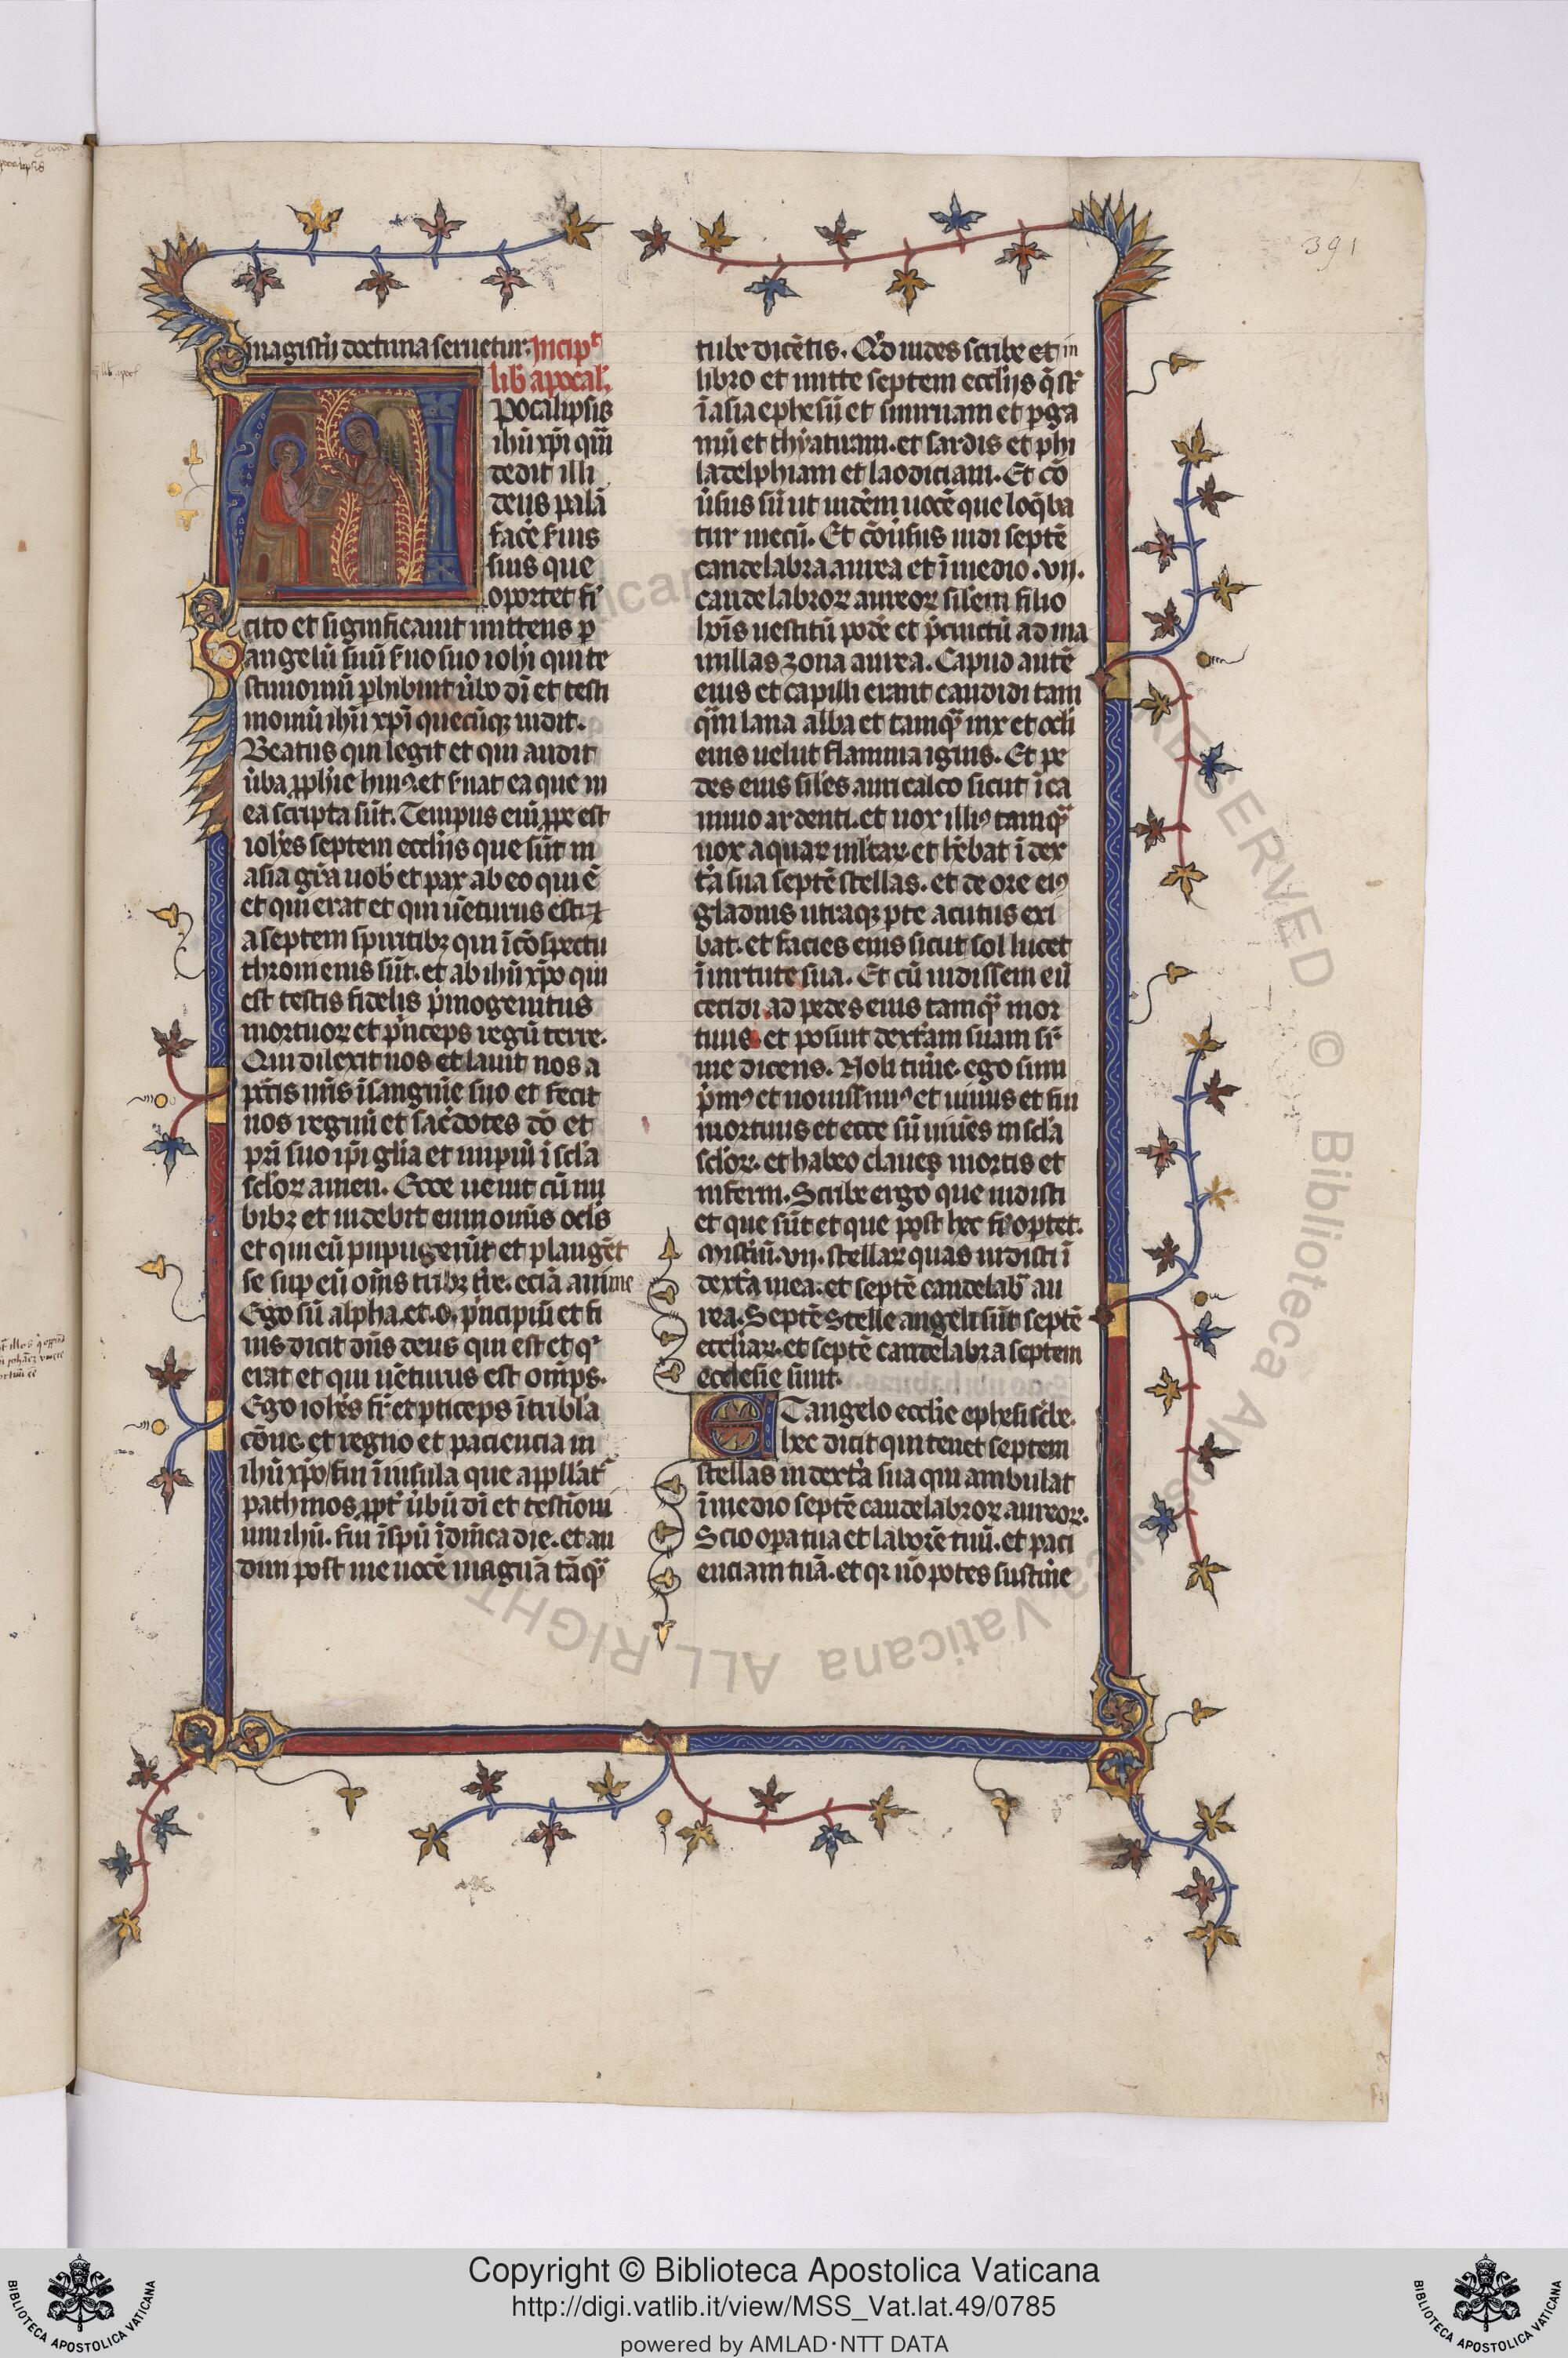 391
magistri doctrina seruetur. Incip̄t
lib̄ apocal̄.
Apocalipsis
ihū xp̄i quā
dedit illi
deus palā
facē ẜuis
suis que
oportet fi̾
cito et significauit mittens p̱
angelū suū ẜuo suo ioh̄i qui te
stimoniū phibuit ůbo dī et testi
moniū ihū xp̄i quecūqꝫ uidit.
Beatus qui legit et qui audit
ůba ꝓph̄ie huiꝰ. et ẜuat ea que in
ea scripta sūt. Tempus enī ꝓpe est
ioh̄es septem eccl̄ijs que sūt in
asia gr̄a uob̄ et pax ab eo qui ē
et qui erat et qui uēturus est. ⁊
a septem spiritibꝫ qui ī cōspectu
throni eius sūt. et ab ihū xp̄o qui
est testis fidelis p̍mogenitus
mortuoꝝ et p̍nceps regū terre.
Qui dilexit nos et lauit nos a
pc̄tis nr̄is ī sanguīe suo et fecit
nos regnū et sac̓dotes dō et
pr̄i suo ip̄i gl̄ia et impiū ī scl̄a
scl̄oꝝ amen. Ecce uenit cū nu
bibꝫ et uidebit eum omīs ocl̄s
et qui eū pupugerūt et plangēt
se sup eū oīns tribꝫ t̓re. eciā amme
Ego sū alpha. et. o. p̍ncipiū et fi
nis dicit dn̄s deus qui est et qͥ
erat et qui uēturus est omp̄s.
Ego ioh̄es fr̄ et pticeps ī tribl̄a
cōne. et regno et paciencia in
ihū xp̄o fui ī insula que appll̄at̾
pathmos ꝓpt̾ ůbū dī et testīoni
um ihū. fui ī sp̄u ī dn̄ica die. et au
diui post me uocē magnā tāqͣ
tube dicētis. Qd̾ uides scribe et in
libro et mitte septem eccl̄ijs q̄ st̄
ī asia ephesū et smirnam et p̱ga
mū et thyatiram. et sardis et phi
ladelphiam et laodiciam. Et cō
ůsus sū ut uidēm uocē que loq̄ba
tur mecū. Et cōůsus uidi septē
candelabra aurea et ī medio .vij.
candelabroꝝ aureoꝝ sil̄em filio
hoīs uestitū podē et p̍cinctū ad ma
millas zona aurea. Capud autē
eius et capilli erant candidi tam
qͣm lana alba et tamqͣ nix et ocl̄i
eius uelut flamma ignis. Et pe
des eius sil̄es auri calco sicut ī ca
mino ardenti. et uox illiꝰ tamqͣ
uox aquaꝝ ml̄taꝝ. et h̄ebat ī dex
t̾a sua septē stellas. et de ore eiꝰ
gladius utraqꝫ pte acutus exi
bat. et facies eius sicut sol lucet
ī uirtute sua. Et cū uidissem eū
cecidi ad pedes eius tamqͣ mor
tuus. et posuit dext̾am suam sr̄
me dicens. Noli tim̄e. ego sum
p̍mꝰ et nouissimꝰ et uiuus et fui
mortuus et ecce sū uiuēs in scl̄a
scl̄oꝝ. et habeo claues mortis et
inferni. Scribe ergo que uidisti
et que sūt et que post hec fi̾ optet.
Mist̾iū. vij. stellaꝝ quas uidisti ī
dext̾a mea. et septē candelab̾ au
rea. Septē stelle angeli sūt septē
eccl̄iaꝝ. et septē candelabra septem
ecclesie sunt.
Et angelo eccl̄ie ephesi sc̍be.
hec dicit qui tenet septem
stellas in dext̾a sua qui ambulat
ī medio septē candelabroꝝ aureoꝝ.
Scio opa tua et laborē tuū. et paci
enciam tuā. et qꝛ nō potes sustin̾e
Copyright © Biblioteca Apostolica Vaticana
http://digi.vatlib.it/view/MSS_Vat.lat.49/0785
powered by AMLAD·NTT DATA
BIBLIOTECA APOSTOLICA VATICANA
BIBLIOTECA APOSTOLICA VATICANA